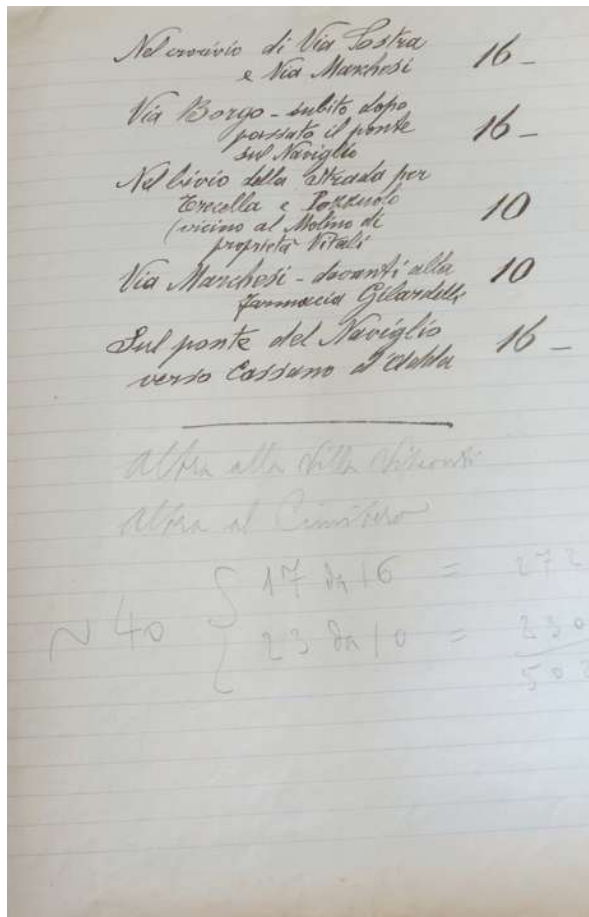 Nel crocivio di Via Sostra
e Via Marchesi 16 -
Via Borgo - subito dopo
passato il ponte 16 -
sul Naviglio
Nel bivio della strada per
Trecella e Pozzuolo
(vicino al Molino di 10
proprietà Vitali
Via Marchesi - davanti alla 10
farmacia Gilardelli
Sul ponte del Naviglio 16 -
verso Cassano d'Adda
Altra alla Villa Visconti
Altra al Cimitero
17 da 16 = 272
N 40
23 da 10 = 230
502